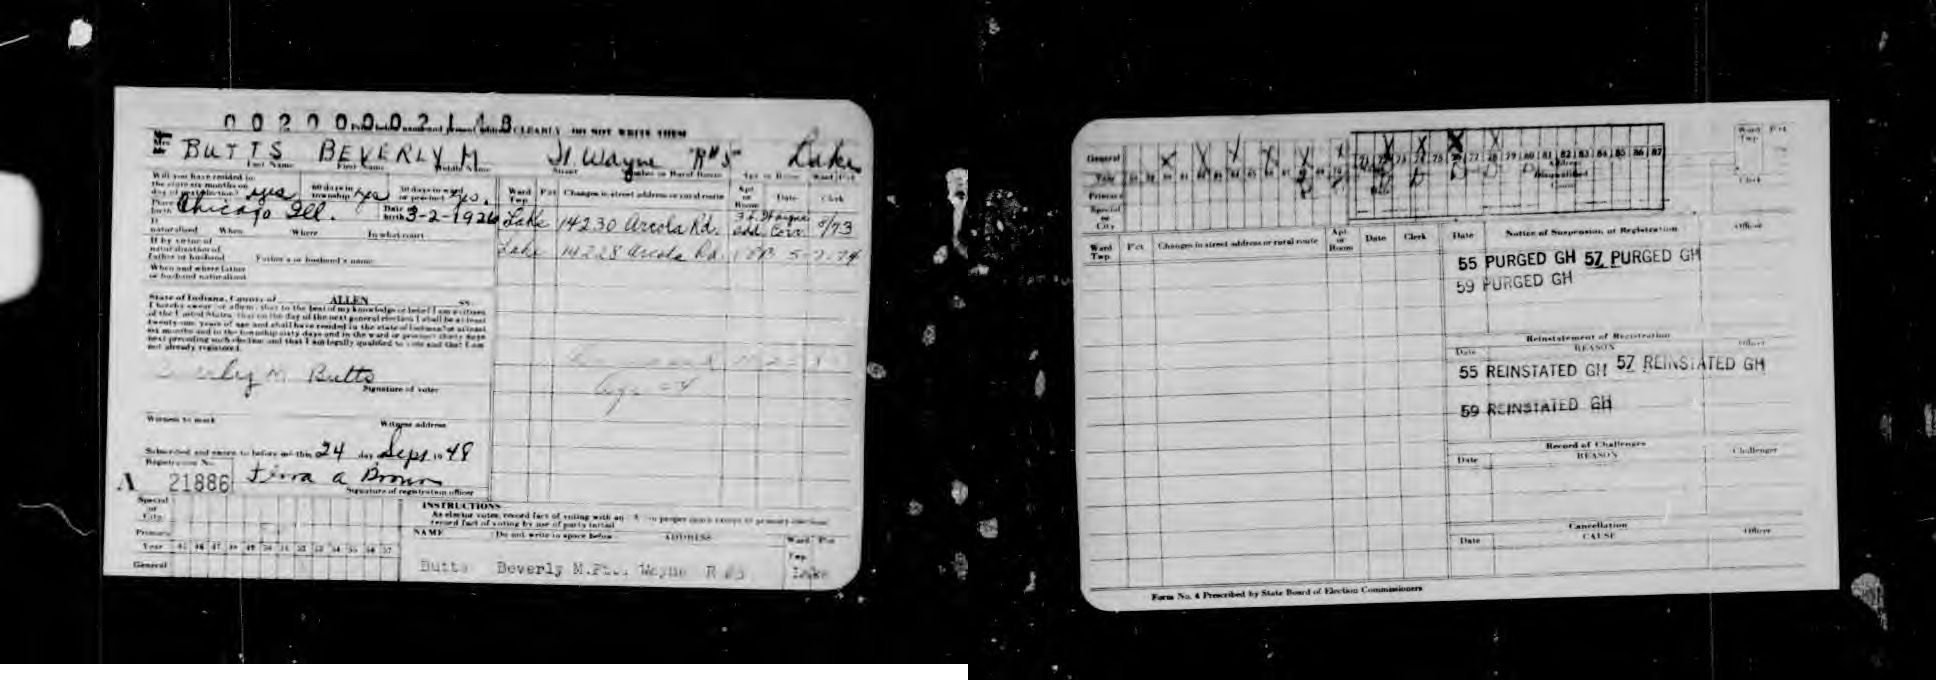 00200002148
CLEARLY DO NOT WRITE THEM
BUTTS BEVERLY M Ft. Wayne R#5 Lake
Last Name First Name Middle Name Street Number or Rural Route Apt or Room Ward Pct
Will you have resided in
the state six months on
day of next election? yes 60 days in township yes 30 days in ward or precinct yes.
Place birth Chicago Ill. Date of birth 3-2-1926
If naturalized When Where In what court
If by virtue of
naturalization of
father or husband Father's or husband's name
When and where father
or husband naturalized
State of Indiana, County of ALLEN ss.
I hereby swear or affirm, that to the best of my knowledge or belief I am a citizen
of the United States, that on the day of the next general election I shall be at least
twenty-one years of age and shall have resided in the state of Indiana for at least
six months and in the township sixty days and in the ward or precinct thirty days
next preceding such election and that I am legally qualified to vote and that I am
not already registered.
Beverly M. Butts
Signature of voter
Witness to mark Witness address
Subscribed and sworn to before me this 24 day Sept 1948
Registration No.
A 21886
Signature of registration officer
Ward Twp. Pct Changes in street address or rural route Apt or Room Date Clerk
Lake 14230 Arcola Rd. Ft. Wayne add. Corr. 8/73
Lake 14228 Arcola Rd. 5-7-74
Special or City
Primary
Year 45 46 47 48 49 50 51 52 53 54 55 56 57
General
INSTRUCTIONS
As elector votes, record fact of voting with an X in proper space except in primary elections
record fact of voting by use of party initial
NAME Do not write in space below ADDRESS Ward Pct
Twp.
Butts Beverly M. Ft. Wayne R #5 Lake
General
Year
Primary
Special or City
71 72 73 74 75 76 77 78 79 80 81 82 83 84 85 86 87
Ward Twp. Pct
Clerk
Ward Twp. Pct Changes in street address or rural route Apt or Room Date Clerk
Date Notice of Suspension, or Registration Officer
55 PURGED GH 57 PURGED GH
59 PURGED GH
Reinstatement of Registration
Date REASON Officer
55 REINSTATED GH 57 REINSTATED GH
59 REINSTATED GH
Record of Challenges
Date REASON Challenger
Cancellation
Date CAUSE Officer
Form No. 4 Prescribed by State Board of Election Commissioners